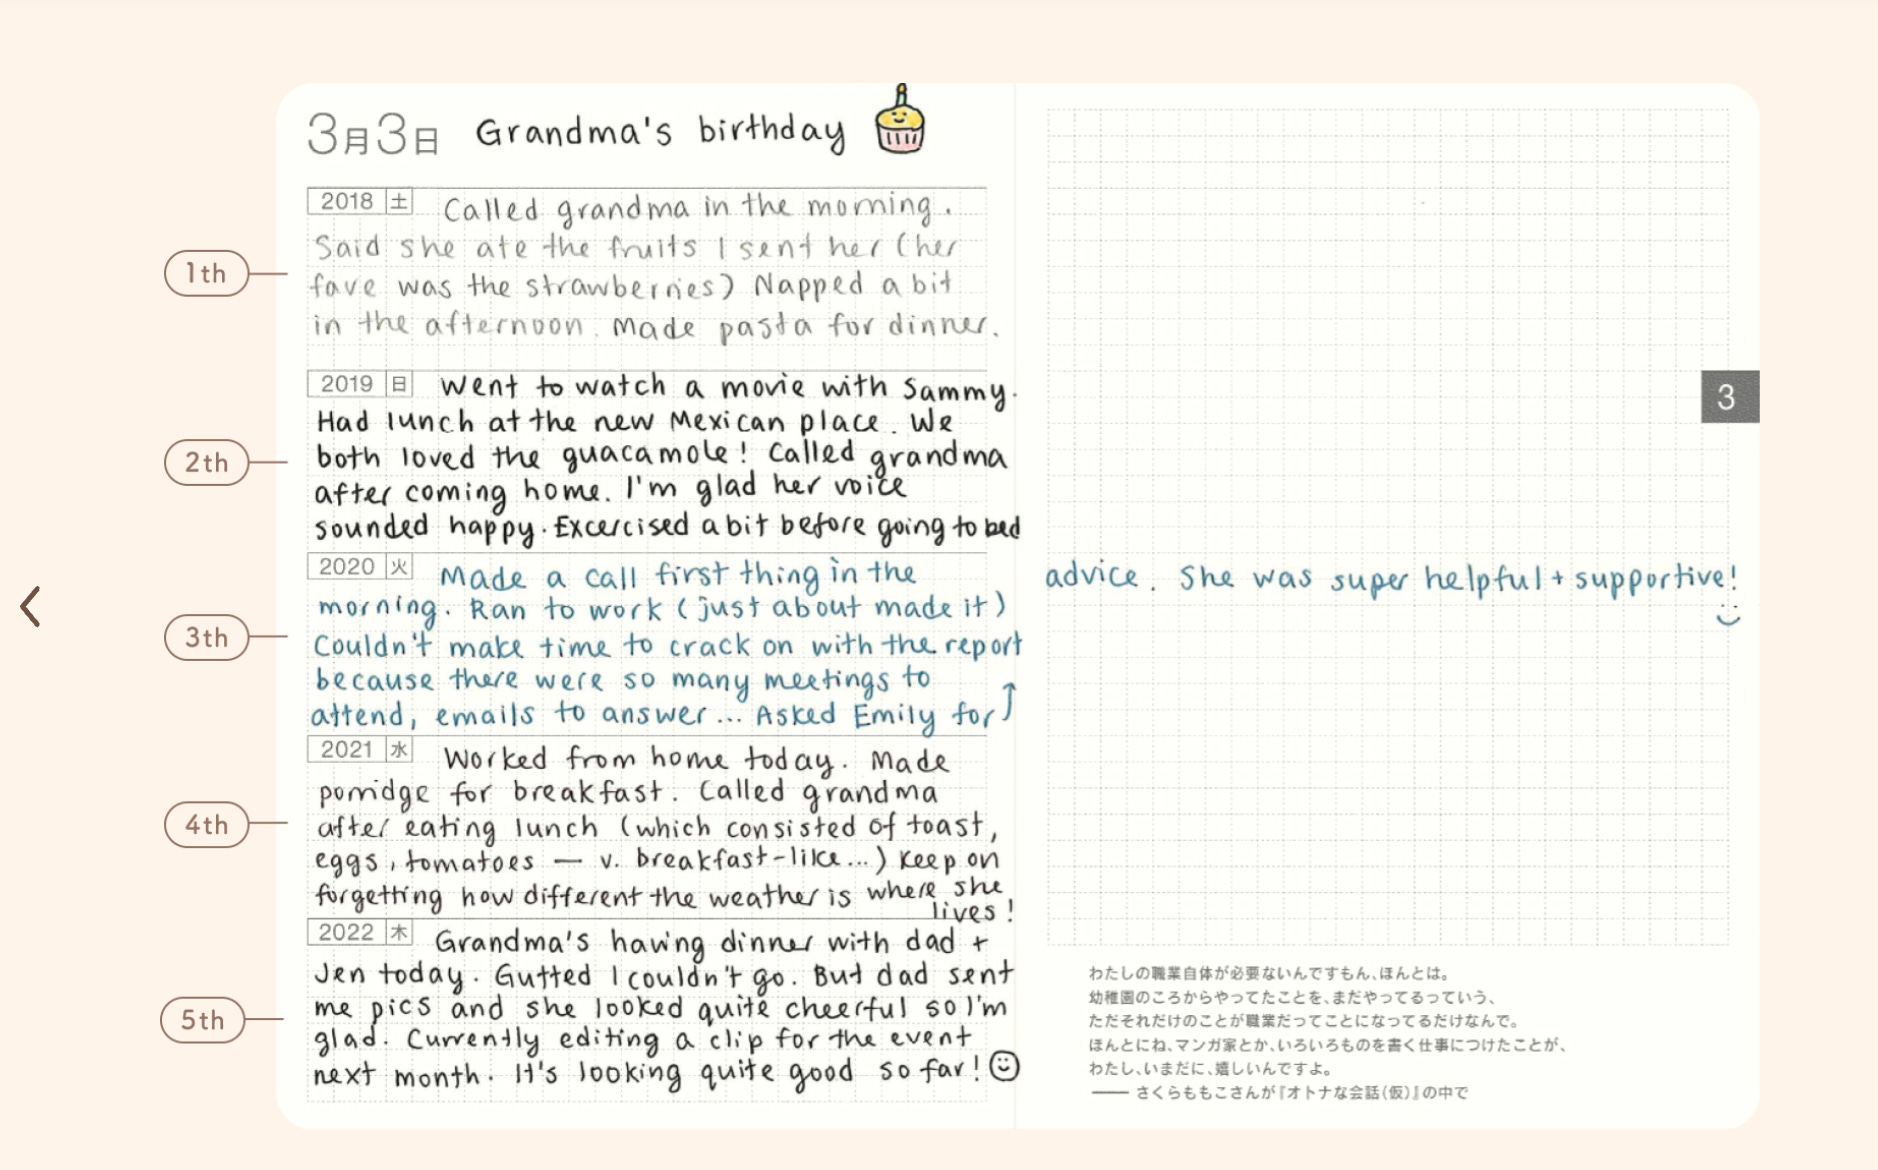 3月3日 Grandma's birthday
2018 土 Called grandma in the morning.
Said she ate the fruits I sent her (her
fave was the strawberries) Napped a bit
in the afternoon. Made pasta for dinner.
1th
2019 日 Went to watch a movie with Sammy.
Had lunch at the new Mexican place. We
both loved the guacamole! Called grandma
after coming home. I'm glad her voice
sounded happy. Excercised a bit before going to bed
2th
2020 火 Made a call first thing in the
morning. Ran to work (just about made it)
Couldn't make time to crack on with the report
because there were so many meetings to
attend, emails to answer... Asked Emily for
3th
2021 水 Worked from home today. Made
porridge for breakfast. Called grandma
after eating lunch (which consisted of toast,
eggs, tomatoes — v. breakfast-like...) Keep on
forgetting how different the weather is where she
lives!
4th
2022 木 Grandma's having dinner with dad +
Jen today. Gutted I couldn't go. But dad sent
me pics and she looked quite cheerful so I'm
glad. Currently editing a clip for the event
next month. It's looking quite good so far!
5th
3
advice. She was super helpful + supportive!
わたしの職業自体が必要ないんですもん、ほんとは。
幼稚園のころからやってたことを、まだやってるっていう、
ただそれだけのことが職業だってことになってるだけなんで。
ほんとにね、マンガ家とか、いろいろものを書く仕事につけたことが、
わたし、いまだに、嬉しいんですよ。
―― さくらももこさんが『オトナな会話(仮)』の中で